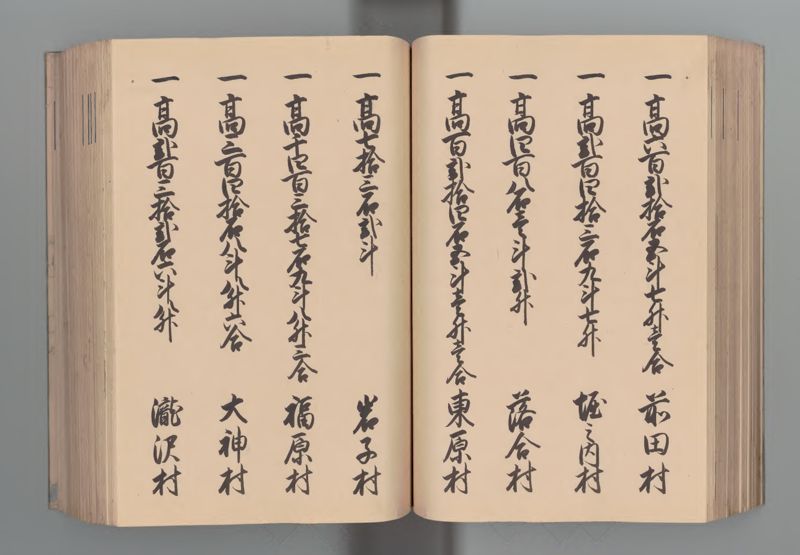 一 高六百弐拾石五斗七升壱合 前田村
一 高弐百四拾三石九斗七升 堀之内村
一 高四百八石壱斗弐升 落合村
一 高百弐拾四石五斗壱升壱合 東原村
一 高七拾三石弐斗 岩子村
一 高千四百三拾七石九斗八升三合 福原村
一 高三百四拾石八斗八升六合 大神村
一 高弐百三拾弐石六斗八升 瀧沢村